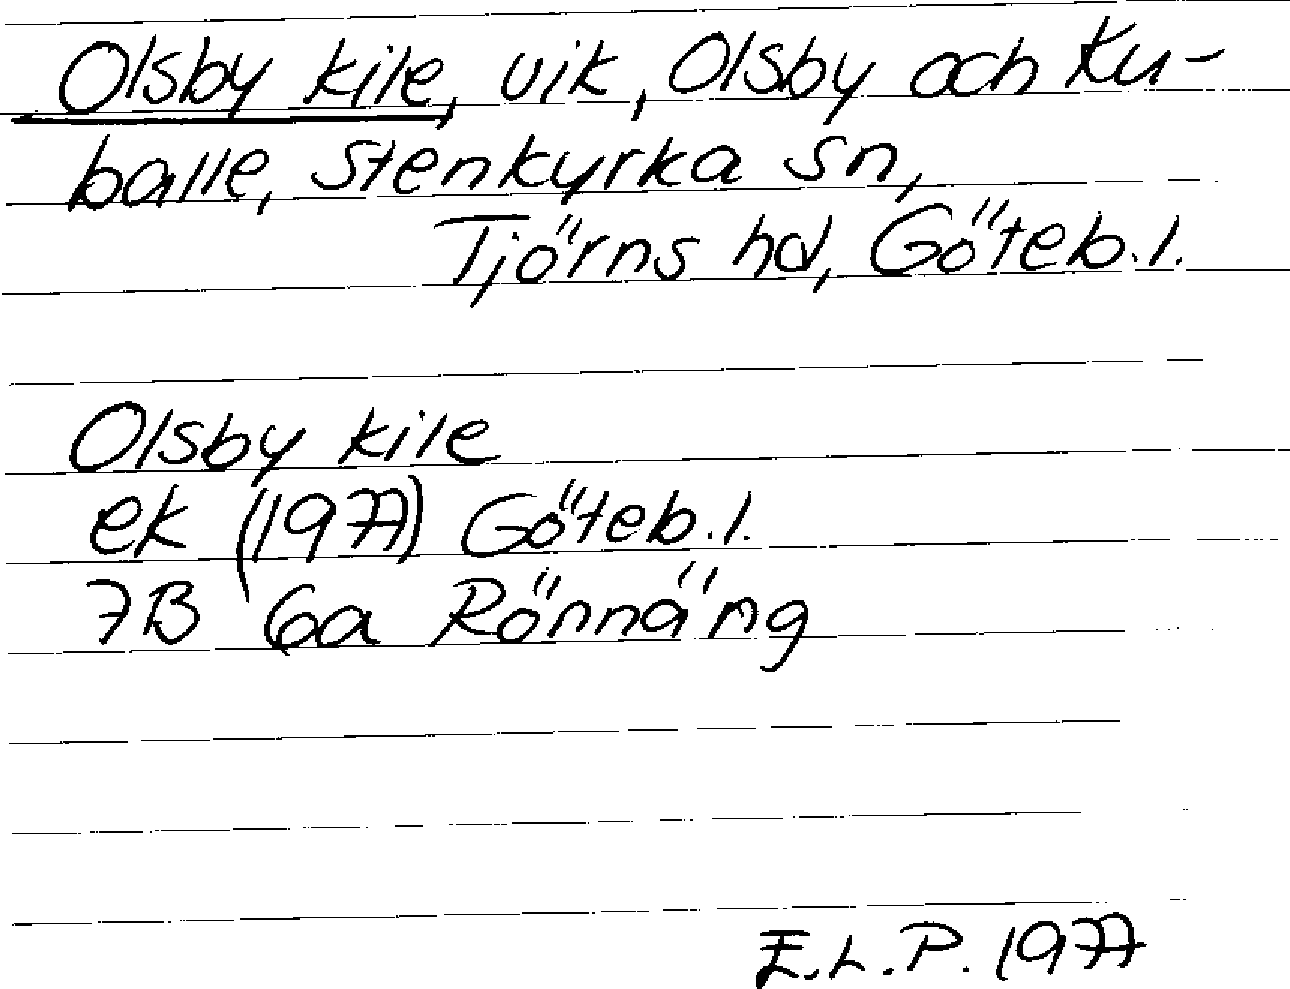 Olsby kile, vik, Olsby och Ku-
balle, Stenkyrka sn,
Tjörns hd, Göteb.l.
Olsby kile
ek (1977) Göteb.l.
7B 6a Rönnäng
E.L.P. 1977